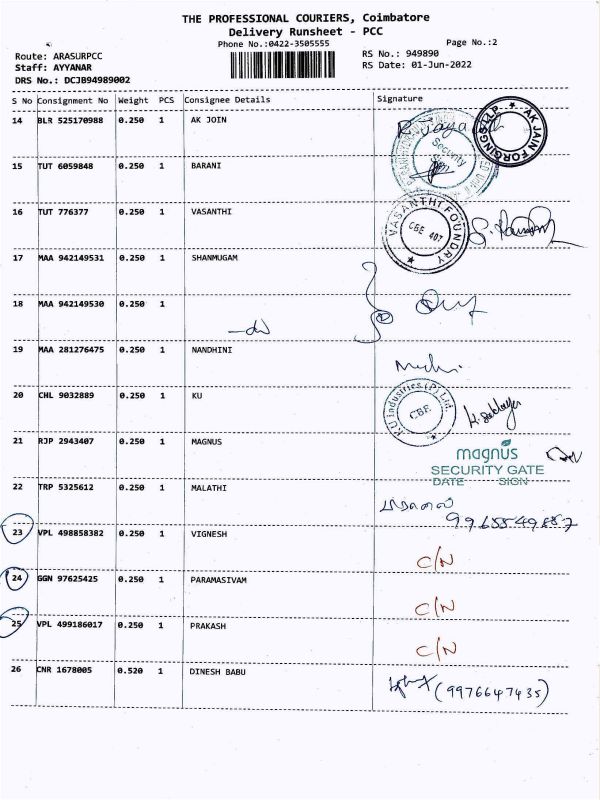 THE PROFESSIONAL COURIERS, Coimbatore
Delivery Runsheet - PCC
Phone No.:0422-3505555
Page No.:2
Route: ARASURPCC
RS No.: 949890
Staff: AYYANAR
RS Date: 01-Jun-2022
DRS No.: DCJB94989002
S No Consignment No Weight PCS Consignee Details Signature
14 BLR 525170988 0.250 1 AK JOIN
AK JAIN FORGINGS LLP
Security
15 TUT 6059848 0.250 1 BARANI
16 TUT 776377 0.250 1 VASANTHI
VASANTHI FOUNDRY
CBE 407
17 MAA 942149531 0.250 1 SHANMUGAM
18 MAA 942149530 0.250 1
19 MAA 281276475 0.250 1 NANDHINI
20 CHL 9032889 0.250 1 KU
KU Industries (P) Ltd.
CBE
21 RJP 2943407 0.250 1 MAGNUS
magnus
SECURITY GATE
DATE SIGN
22 TRP 5325612 0.250 1 MALATHI
மாலதி
9965549887
23 VPL 498858382 0.250 1 VIGNESH
C/N
24 GGN 97625425 0.250 1 PARAMASIVAM
C/N
25 VPL 499186017 0.250 1 PRAKASH
C/N
26 CNR 1678005 0.520 1 DINESH BABU
(9976647435)